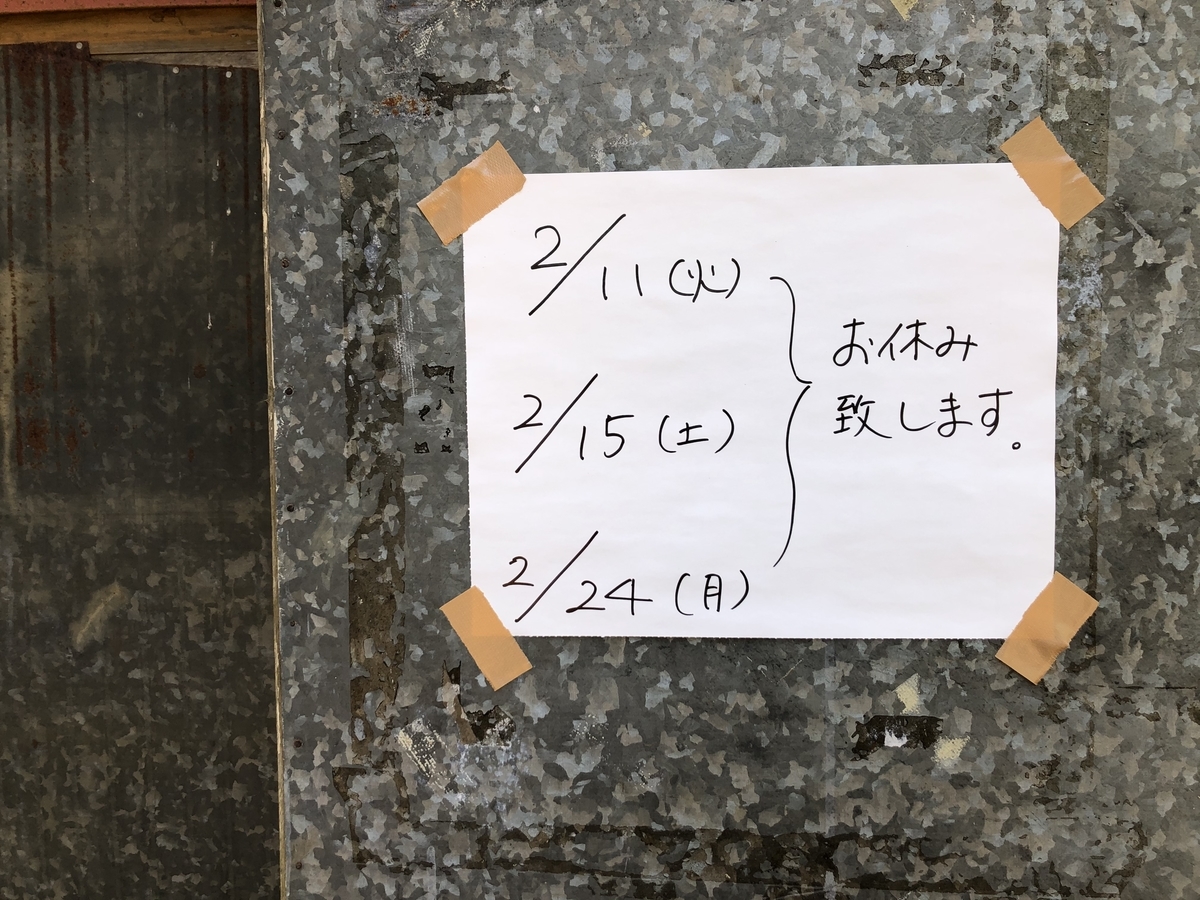 2/11(火)
2/15(土)
2/24(月)
お休み
致します。